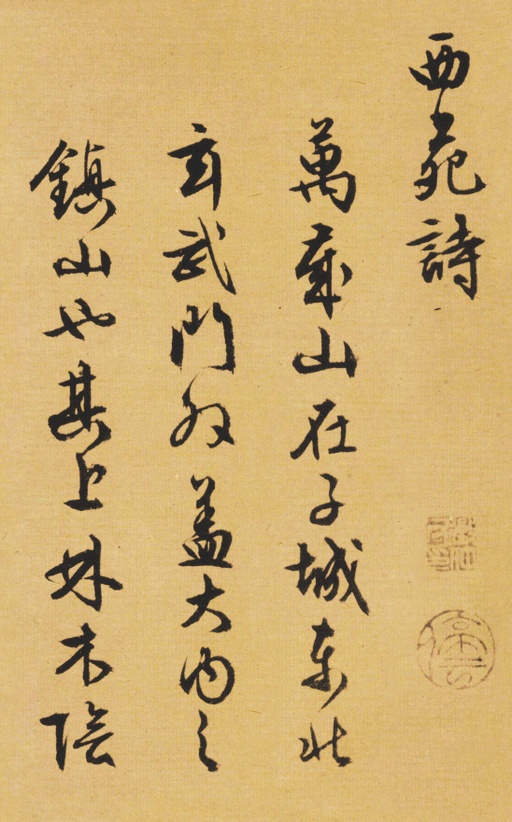 西苑詩
萬歲山在子城東北
玄武門外蓋大內之
鎮山也其上林木陰